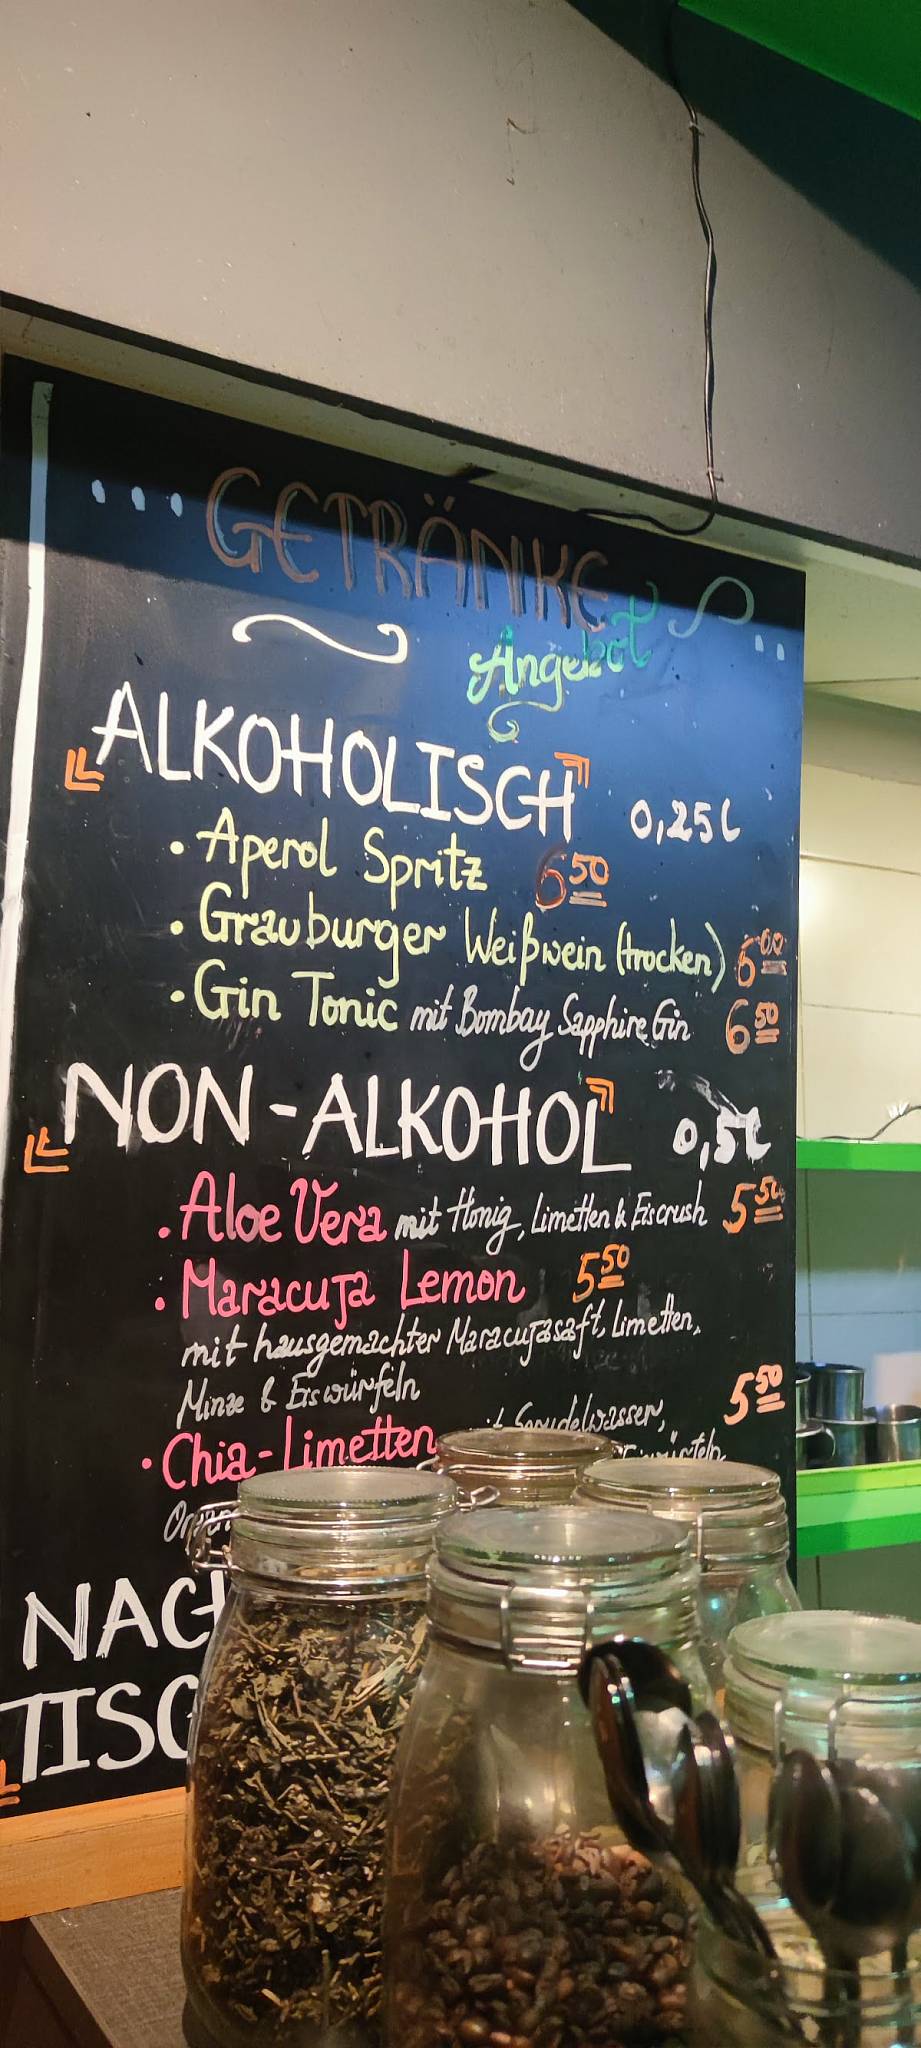 GETRÄNKE
Angebot
ALKOHOLISCH 0,25l
• Aperol Spritz 6 50
• Grauburger Weißwein (trocken) 6 00
• Gin Tonic mit Bombay Sapphire Gin 6 50
NON-ALKOHOL 0,5l
• Aloe Vera mit Honig, Limetten & Eiscrush 5 50
• Maracuja Lemon 5 50
mit hausgemachter Maracujasaft, Limetten,
Minze & Eiswürfeln
• Chia-Limetten Sprudelwasser, 5 50
NACH
TISC